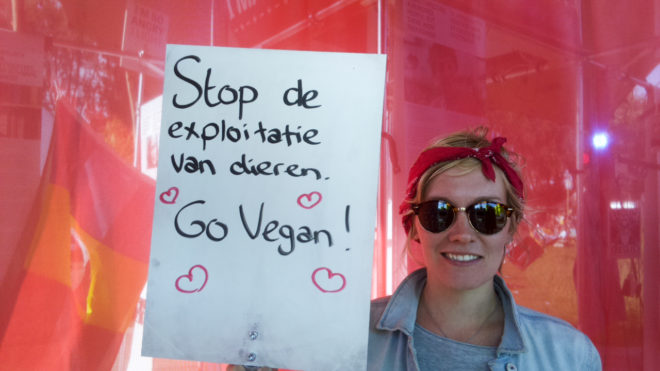 Stop de
exploitatie
van dieren.
Go Vegan!